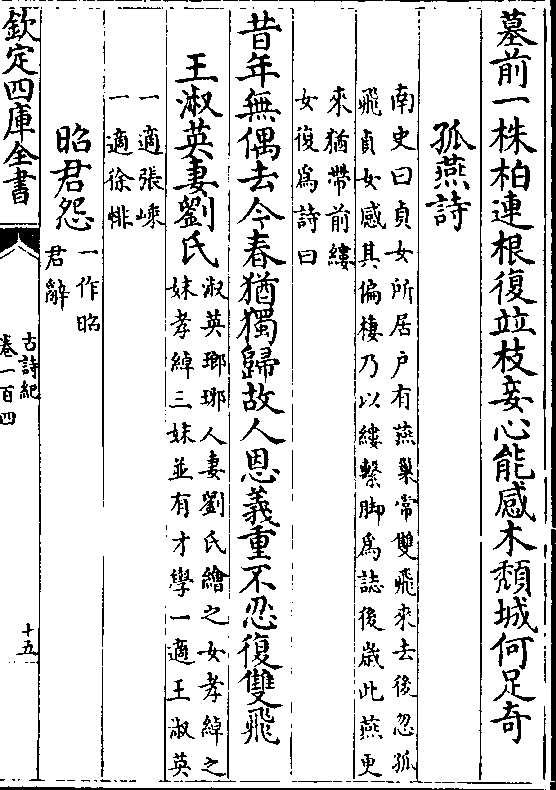 墓前一株柏連根復竝枝妾心能感木頽城何足奇
孤燕詩
南史曰貞女所居户有燕巢常雙飛來去後忽孤
飛貞女感其偏棲乃以縷繫脚爲誌後歲此燕更
來猶帶前縷
女復爲詩曰
昔年無偶去今春猶獨歸故人恩義重不忍復雙飛
王淑英妻劉氏
淑英瑯琊人妻劉氏繪之女孝綽之
妹孝綽三妹並有才學一適王淑英
一適張嵊
一適徐悱
昭君怨
一作昭
君辭
欽定四庫全書
古詩紀
卷一百四
十五